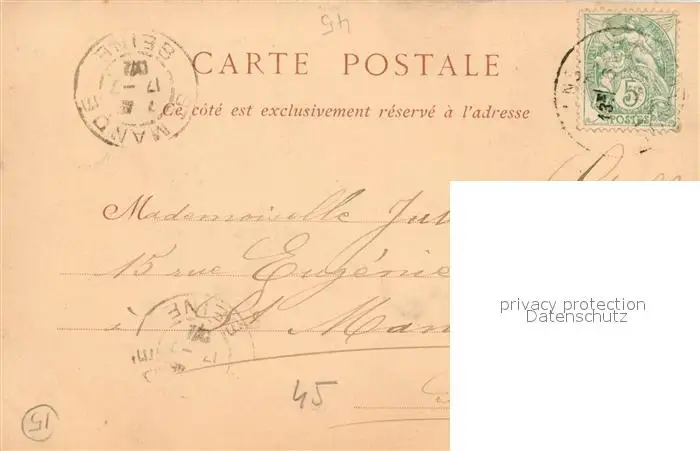 45
CARTE POSTALE
Ce côté est exclusivement réservé à l'adresse
5c
POSTES
SEINE
ST MANDE
17
Mademoiselle
15 rue Eugénie
à St Man
privacy protection
Datenschutz
17
45
15